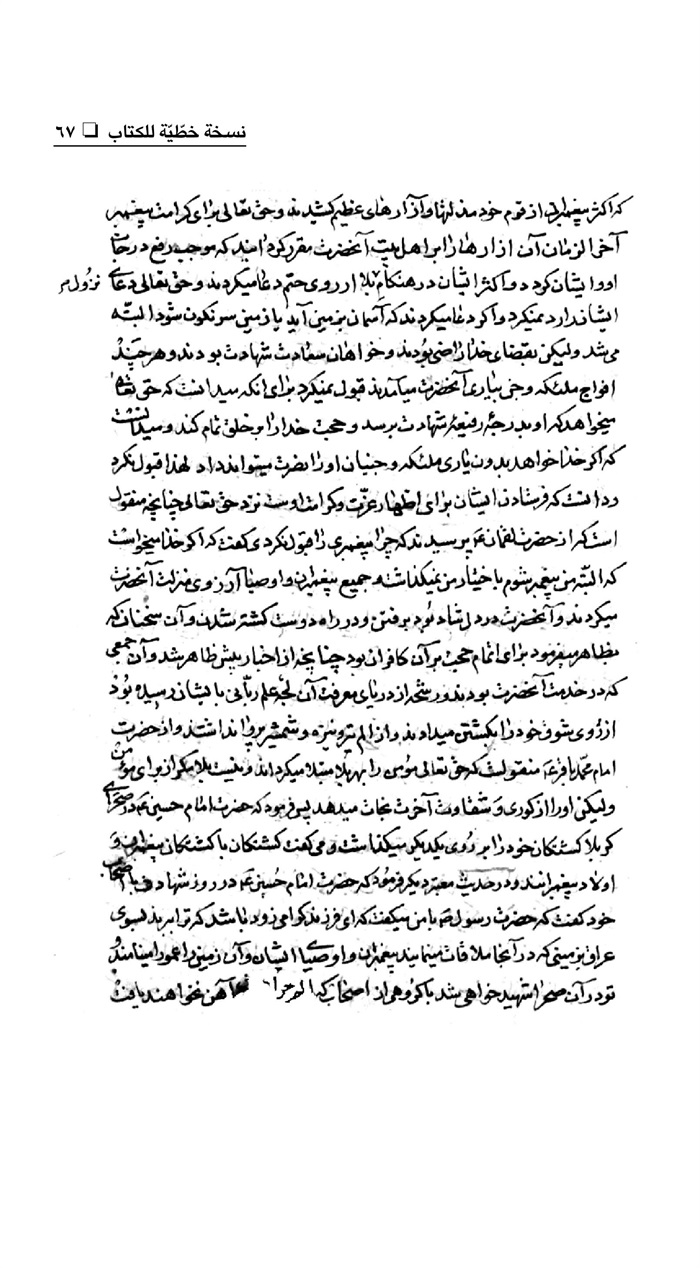 نسخة خطّيّة للكتاب ❏ ٦٧
که اکثر پیغمبران از قوم خود مذلتها و آزارهای عظیم کشیدند و حق تعالی برای کرامت پیغمبر
آخر الزمان آن ازارها را بر اهل بیت آنحضرت مقرر کردانید که موجب رفع درجات
او و ایشان کردد و اکثر ایشان در هنکام بلا از روی حتم دعا میکردند و حق تعالی دعای
نزول م
ایشانرا رد نمیکرد و اکر دعا میکردند که آسمان بزمین آید یا زمین سرنکون شود البته
می شد ولیکن بقضای خدا راضی بودند و خواهان سعادت شهادت بودند و هر چند
افواج ملئکه و جن بیاری آنحضرت میآمدند قبول نمیکرد برای انکه میدانست که حق تعالی
میخواهد که او بدرجهٔ رفیعهٔ شهادت برسد و حجت خدا را بر خلق تمام کند و میدانست
که اکر خدا خواهد بدون یاری ملئکه و جنیان او را نصرت میتواند داد لهذا قبول نکرد
و دانست که فرستادن ایشان برای اظهار عزت و کرامت اوست نزد حق تعالی چنانچه منقول
است که از حضرت لقمان ع پرسیدند که چرا پیغمبری را قبول نکردی کفت که اکر خدا میخواست
که البته من پیغمبر شوم باختیار من نمیکذاشت و جمیع پیغمبران و اوصیا آرزوی منزلت آنحضرت
میکردند و آنحضرت در دل شاد بود برفتن و در راه دوست کشته شدن و آن سخنان که
بظاهر میفرمود برای اتمام حجت بر آن کافران بود چنانچه از اخبار پیش ظاهر شد و آن جمعی
که در خدمت آنحضرت بودند و رشحه از دریای معرفت آن لجهٔ علم ربانی بایشان رسیده بود
از روی شوق خود را بکشتن میدادند و از الم تیر و نیزه و شمشیر پروا نداشتند و از حضرت
امام محمد باقر ع منقولست که حق تعالی مؤمن را بهر بلا مبتلا میکرداند و نیست بلا مکر از برای مؤمن
ولیکن او را از کوری و شقاوت آخرت نجات میدهد پس فرمود که حضرت امام حسین ع در صحرای
کربلا کشتکان خود را بر روی یکدیکر میکذاشت و می کفت کشتکان ما کشتکان پیغمبران و
اولاد پیغمبرانند و در حدیث معتبر دیکر فرمود که حضرت امام حسین ع در روز شهادت با اصحاب
خود کفت که حضرت رسول ص با من میکفت که ای فرزند کرامی زود باشد که ترا ببرند بسوی
عراق بزمینی که در آنجا ملاقات مینمایند پیغمبران و اوصیاء ایشان و آن زمین را عمورا مینامند و
تو در آن صحرا شهید خواهی شد با کروهی از اصحاب که الم آهن نخواهند یافت